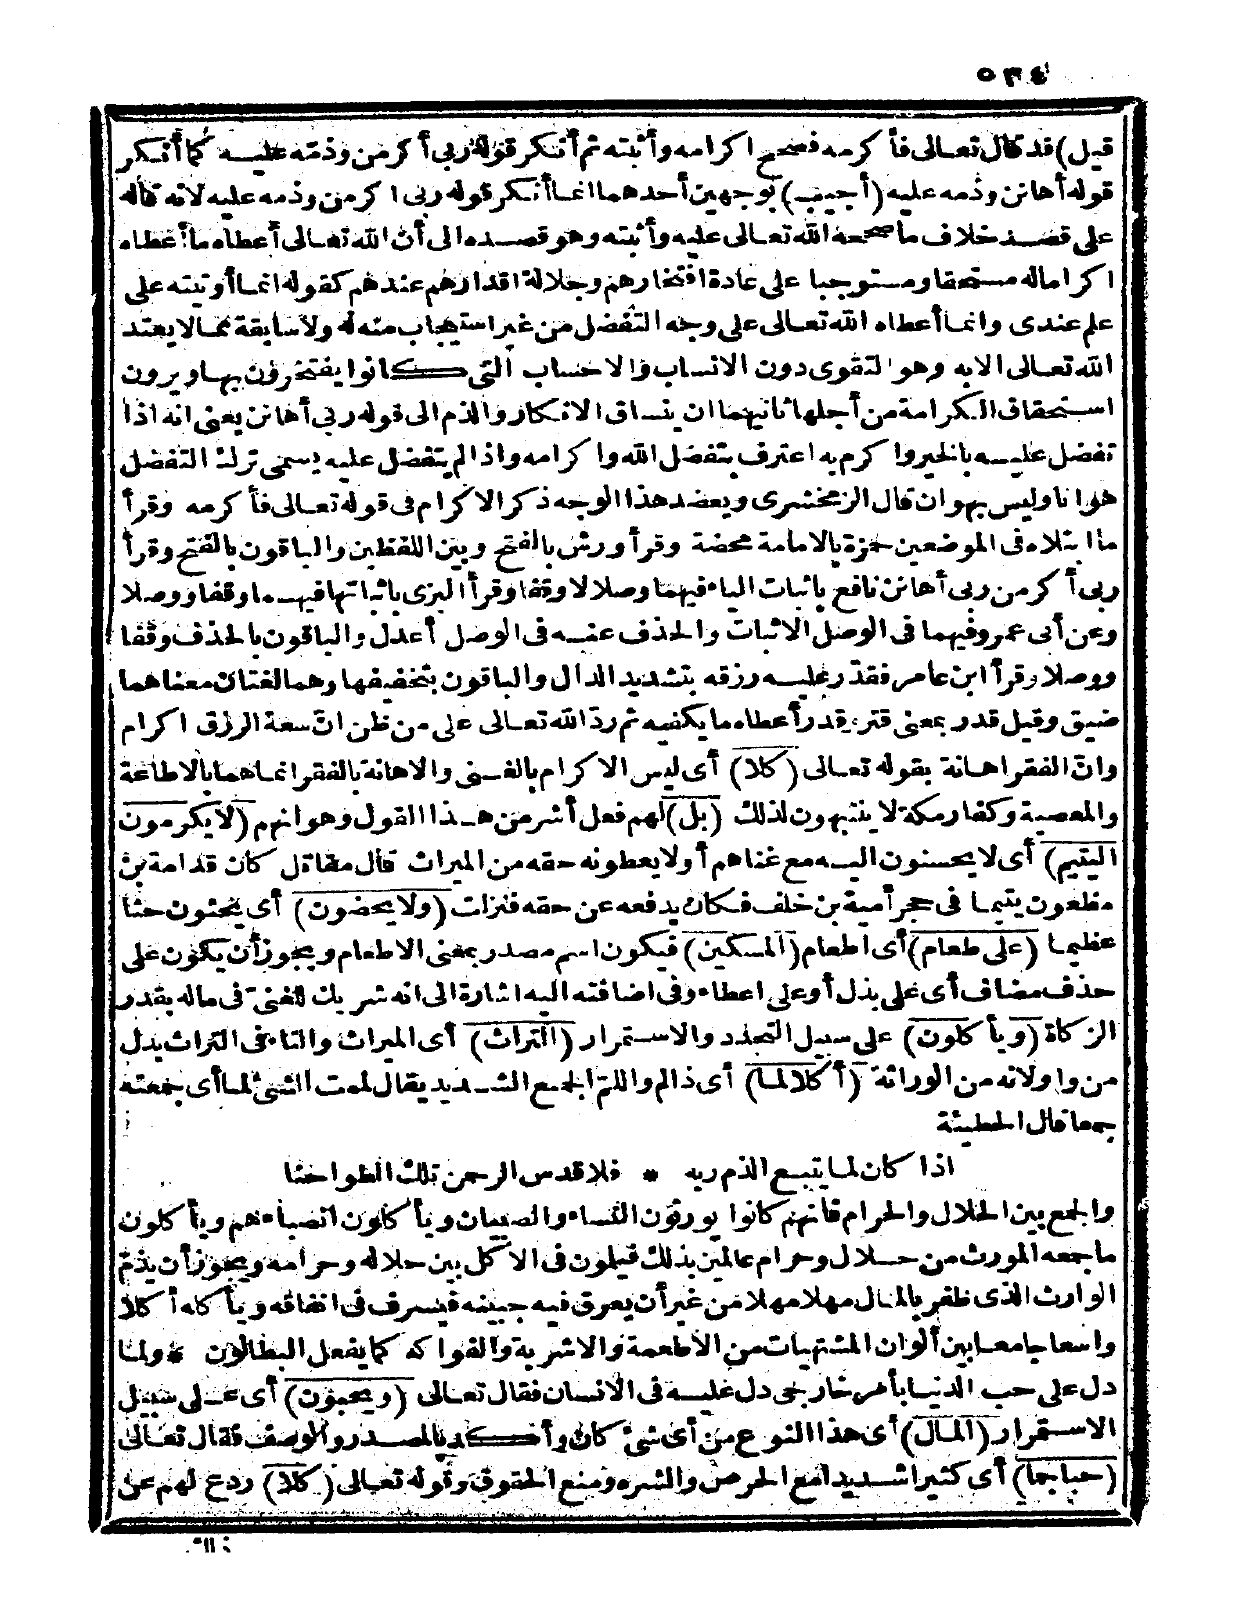 ٥٣٤
قيل) قد قال تعالى فأكرمه فصحح اكرامه وأثبته ثم أنكر قوله ربى أكرمن وذمّه عليه كما أنكر
قوله أهانن وذمه عليه (أجيب) بوجهين أحدهما انما أنكر قوله ربى اكرمن وذمه عليه لانه قاله
على قصد خلاف ما صححه الله تعالى عليه وأثبته وهو قصده الى أن الله تعالى أعطاه ما أعطاه
اكراماله مستحقا ومستوجبا على عادة افتخارهم وجلالة اقدارهم عندهم كقوله انما أوتيته على
علم عندى وانما أعطاه الله تعالى على وجه التفضل من غير استيجاب منه له ولا سابقة مما لا يعتد
الله تعالى الا به وهو التقوى دون الانساب والاحساب التى كانوا يفتخرون بها ويرون
استحقاق الكرامة من أجلها ثانيهما ان ينساق الانكار والذم الى قوله ربى أهانن يعنى انه اذا
تفضل عليه بالخير واكرم به اعترف بتفضل الله واكرامه واذا لم يتفضل عليه يسمى ترك التفضل
هوانا وليس بهوان قال الزمخشرى ويعضد هذا الوجه ذكر الاكرام فى قوله تعالى فأكرمه وقرأ
ما ابتلاه فى الموضعين حمزة بالامالة محضة وقرأ ورش بالفتح وبين اللفظين والباقون بالفتح وقرأ
ربى أكرمن ربى أهانن نافع باثبات الياء فيهما وصلا لا وقفا وقرأ البزى باثباتها فيهما وقفا ووصلا
وعن أبى عمرو فيهما فى الوصل الاثبات والحذف عنه فى الوصل أعدل والباقون بالحذف وقفا
ووصلا وقرأ ابن عامر فقدّر عليه رزقه بتشديد الدال والباقون بتخفيفها وهما لغتان معناهما
ضيق وقيل قدر بمعنى قتر وقدر أعطاه ما يكفيه ثم ردّ الله تعالى على من ظن انّ سعة الرزق اكرام
وانّ الفقر اهانة بقوله تعالى (كلا) أى ليس الاكرام بالغنى والاهانة بالفقر انما هما بالاطاعة
والمعصية وكفار مكة لا ينتبهون لذلك (بل) لهم فعل أشر من هذا القول وهو انهم (لا يكرمون
اليتيم) أى لا يحسنون اليه مع غناهم أو لا يعطونه حقه من الميراث قال مقاتل كان قدامة بن
مظعون يتيما فى حجر أمية بن خلف فكان يدفعه عن حقه فنزلت (ولا يحضون) أى يحثون حثا
عظيما (على طعام) أى اطعام (المسكين) فيكون اسم مصدر بمعنى الاطعام ويجوز أن يكون على
حذف مضاف أى على بذل أو على اعطاء وفى اضافته اليه اشارة الى انه شريك للغنىّ فى ماله بقدر
الزكاة (ويأكلون) على سبيل التجدد والاستمرار (التراث) أى الميراث والتاء فى التراث بدل
من واو لانه من الوراثة (أكلا لما) أى ذا لم واللمّ الجمع الشديد يقال لممت الشئ لما أى جمعته
جمعا قال الحطيئة
اذا كان لما يتبع الذم ربه * فلا قدس الرحمن تلك الطواحنا
والجمع بين الحلال والحرام فأنهم كانوا يورثون النساء والصبيان ويأكلون انصباءهم ويأكلون
ما جمعه المورث من حلال وحرام عالمين بذلك فيلمون فى الاكل بين حلاله وحرامه ويجوز أن يذمّ
الوارث الذى ظفر بالمال سهلا مهلا من غير أن يعرق فيه جبينه فيسرف فى انفاقه ويأكله أكلا
واسعا جامعا بين ألوان المشتهيات من الأطعمة والاشربة والفواكه كما يفعل البطالون * ولما
دل على حب الدنيا بأمر خارجى دل عليه فى الانسان فقال تعالى (ويحبون) أى على سبيل
الاستمرار (المال) أى هذا النوع من أى شئ كان وأكد بالمصدر والوصف فقال تعالى
(حبا جما) أى كثيرا شديدا مع الحرص والشره ومنع الحقوق وقوله تعالى (كلا) ردع لهم عن